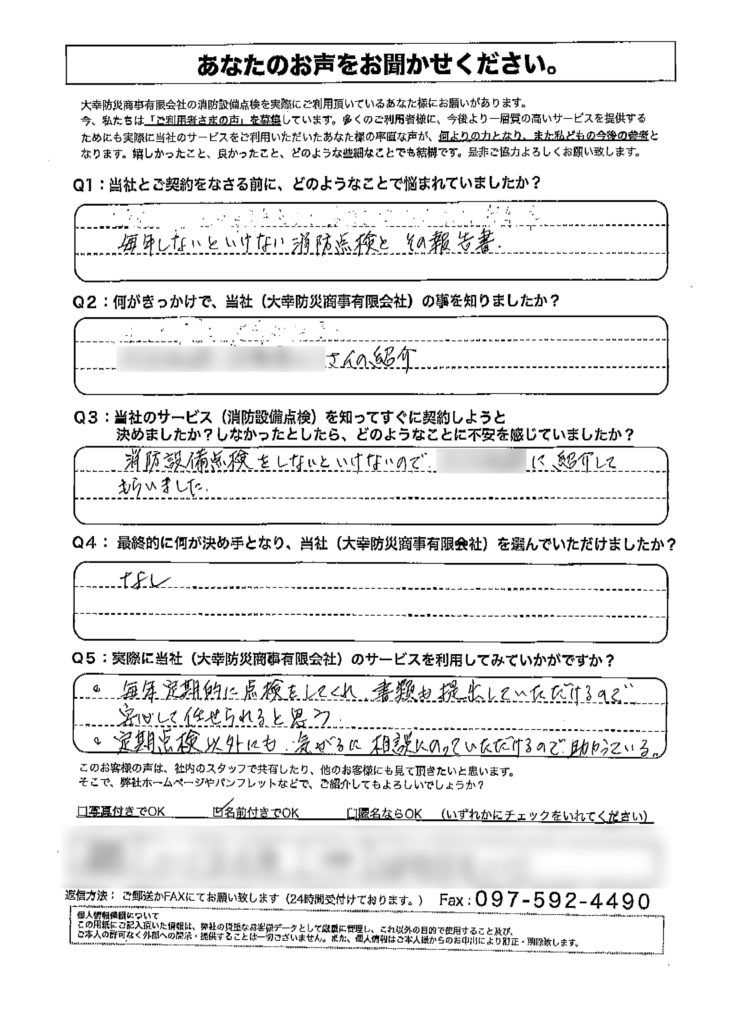 あなたのお声をお聞かせください。
大幸防災商事有限会社の消防設備点検を実際にご利用頂いているあなた様にお願いがあります。
今、私たちは「ご利用者さまの声」を募集しています。多くのご利用者様に、今後より一層質の高いサービスを提供する
ためにも実際に当社のサービスをご利用いただいたあなた様の率直な声が、何よりの力となり、また私どもの今後の参考と
なります。嬉しかったこと、良かったこと、どのような些細なことでも結構です。是非ご協力よろしくお願い致します。
Q1:当社とご契約をなさる前に、どのようなことで悩まれていましたか?
毎年しないといけない消防点検と その報告書.
Q2:何がきっかけで、当社(大幸防災商事有限会社)の事を知りましたか?
さんの紹介
Q3:当社のサービス(消防設備点検)を知ってすぐに契約しようと
決めましたか?しなかったとしたら、どのようなことに不安を感じていましたか?
消防設備点検をしないといけないので. に紹介して
もらいました.
Q4: 最終的に何が決め手となり、当社(大幸防災商事有限会社)を選んでいただけましたか?
なし
Q5:実際に当社(大幸防災商事有限会社)のサービスを利用してみていかがですか?
。毎年定期的に点検をしてくれ 書類も提出していただけるので
安心して任せられると思う.
。定期点検以外にも、気がるに相談にのっていただけるので助かっている。
このお客様の声は、社内のスタッフで共有したり、他のお客様にも見て頂きたいと思います。
そこで、弊社ホームページやパンフレットなどで、ご紹介してもよろしいでしょうか?
□写真付きでOK ☑名前付きでOK □匿名ならOK (いずれかにチェックをいれてください)
返信方法: ご郵送かFAXにてお願い致します(24時間受付けております。) Fax:097-592-4490
個人情報保護について
この用紙にご記入頂いた情報は、弊社の貴重なお客様データとして厳重に管理し、これ以外の目的で使用すること及び、
ご本人の許可なく外部への開示・提供することは一切ございません。また、個人情報はご本人様からのお申出により訂正・削除致します。